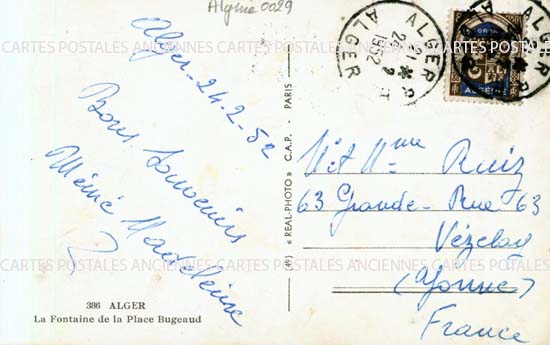 Algérie 0029
Alger - 24-2-52
Bons Souvenirs
Mémé Madeleine
386 ALGER
La Fontaine de la Place Bugeaud
(49) « REAL-PHOTO » C.A.P. - PARIS
ALGER R.P
1952
ALGER
ALGÉRIE
Mr et Mme Ruiz
63 Grande-Rue 63
Vézelay
(Yonne)
France
CARTES POSTALES ANCIENNES
CARTES POSTALES ANCIENNES
CARTES POSTALES ANCIENNES
CARTES POSTALES ANCIENNES